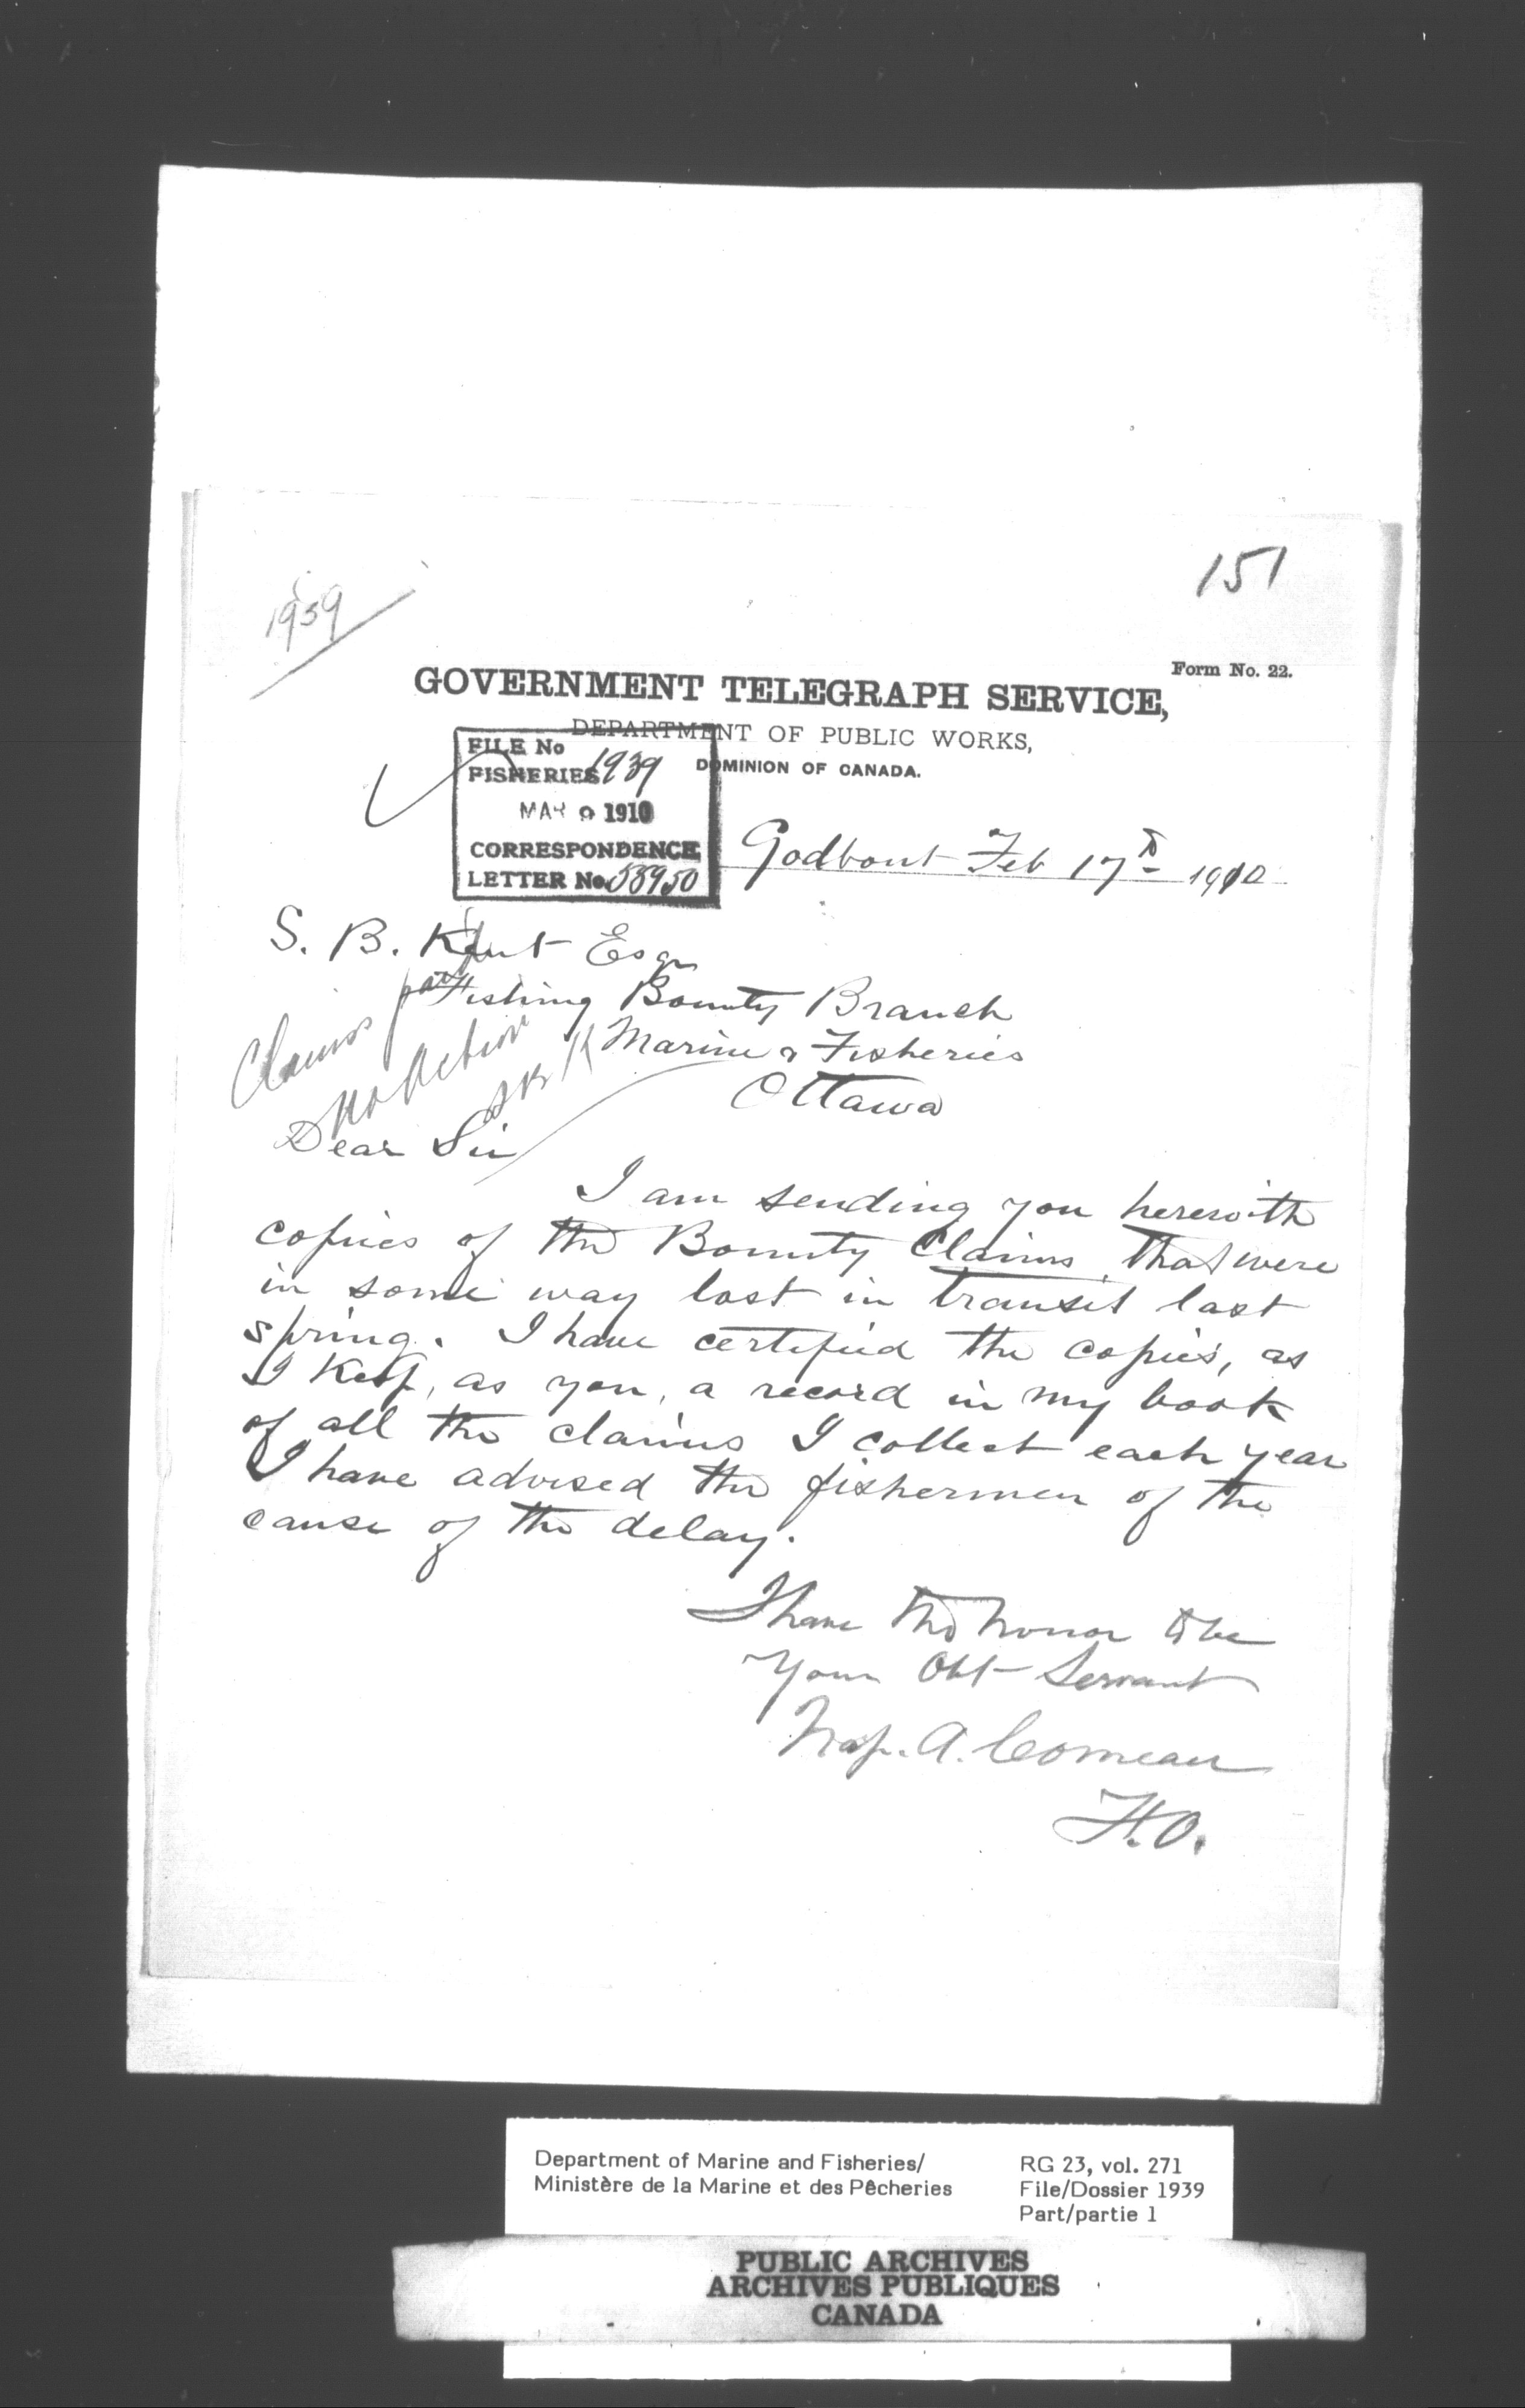 151
1939
Form No. 22.
GOVERNMENT TELEGRAPH SERVICE,
DEPARTMENT OF PUBLIC WORKS,
DOMINION OF CANADA.
FILE No
FISHERIES 1939
MAR 9 1910
CORRESPONDENCE
LETTER No. 58950
Godbout Feb 17th 1910
S. B. Kent Esqr
Fishing Bounty Branch
Marine & Fisheries
Ottawa
Claims paid
No Action
Dear Sir
I am sending you herewith
copies of the Bounty Claims, that were
in some way lost in transit last
spring. I have certified the copies, as
I Keep, as you, a record in my book
of all the claims I collect each year
I have advised the fishermen of the
cause of the delay.
I have the honor to be
Your Obt Servant
Nap. A. Comeau
F.O.
Department of Marine and Fisheries/
Ministère de la Marine et des Pêcheries
RG 23, vol. 271
File/Dossier 1939
Part/partie 1
PUBLIC ARCHIVES
ARCHIVES PUBLIQUES
CANADA